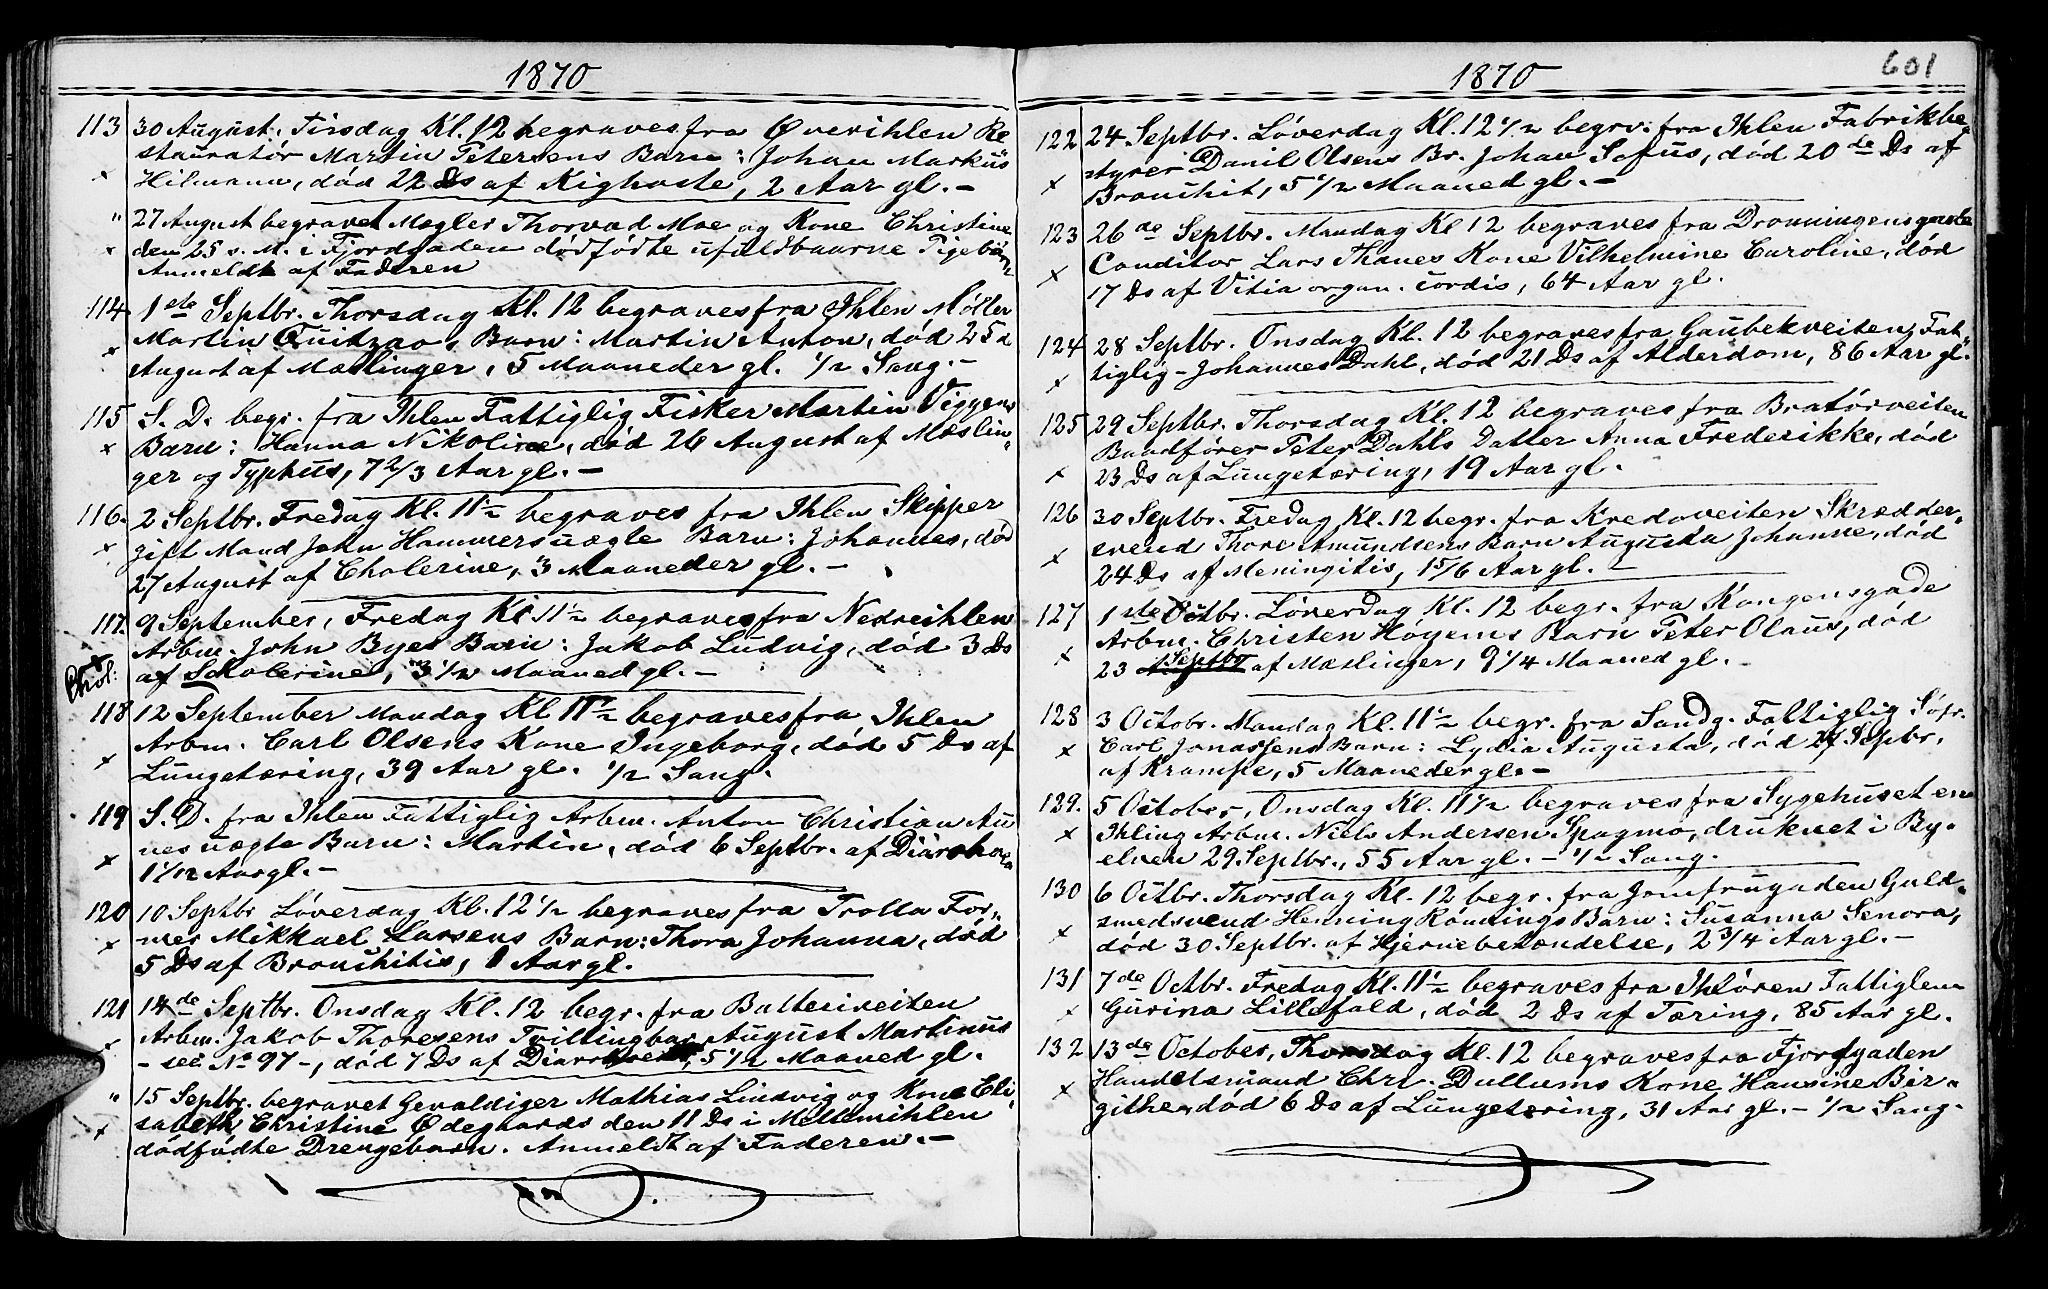 1870
113 30 August. Tirsdag Kl. 12 begraves fra Øverihlen Re-
stauratør Martin Petersens Barn: Johan Markus
x Hilmann, død 22 Ds af Kighoste, 2 Aar gl. -
" 27 August begravet Mægler Thorvad Moe og Kone Christine
x den 25 s. M. i Fjordgaden dødfødte ufuldbaarne Pigebørn.
Anmeldt af Faderen
114 1ste Septbr. Thorsdag Kl. 12 begraves fra Ihlen Møller
x Martin Quitzao, Barn: Martin Anton, død 25d
August af Mæslinger, 5 Maaneder gl. 1/2 Sang. -
115 S. D. begr. fra Ihlen Fattiglig Fisker Martin Viggens
x Barn: Hanna Nikoline, død 26 August af Mæslin-
ger og Typhus, 7 2/3 Aar gl. -
116. 2 Septbr. Fredag Kl. 11 1/2 begraves fra Ihlen Skipper
x gift Mand John Hammers uægte Barn: Johannes, død
27 August af Cholerine, 3 Maaneder gl. -
117. 9 September, Fredag Kl 11 1/2 begraves fra Nedreihlen
x Arbm. John Byes Barn: Jakob Ludvig, død 3 Ds
Chol: af Scholerine, 3 1/2 Maaned gl. -
118 12 September Mandag Kl 11 1/2 begraves fra Ihlen
x Arbm. Carl Olsens Kone Ingeborg, død 5 Ds af
Lungetæring, 39 Aar gl. 1/2 Sang.
119 S. D. fra Ihlen Fattiglig Arbm. Anton Christian Au
x nes uægte Barn: Martin, død 6 Septbr. af Diarrhoea
1 1/12 Aar gl. -
120 10 Septbr Løverdag Kl. 12 1/2 begraves fra Trolla For-
x mer Mikkael Larsens Barn: Thora Johanna, død
5 Ds af Bronchitis, 1 Aar gl.
121 14de Septbr. Onsdag Kl. 12 begr. fra Batteriveiten
x Arbm. Jakob Thoresens Tvillingbar August Martinus
- see No 97 -, død 7 Ds af 5 1/2 Maaned gl.
" 15 Septbr. begravet Gevaldiger Mathias Lindvig og Kone Eli-
x sabeth Christine Ødegaards den 11 Ds i Mellemihlen
dødfødte Drengebarn. Anmeldt af Faderen. -
1870
601
122 24 Septbr. Løverdag Kl. 12 1/2 begrv. fra Ihlen Fabrikbe-
styrer Danil Olsens Br. Johan Sofus, død 20de Ds af
x Bronchit, 5 1/2 Maaned gl. -
123 26de Septbr. Mandag Kl 12 begraves fra Dronningensgade
Conditor Lars Thanes Kone Vilhelmine Caroline, død
x 17 Ds af Vitia organ. cordis, 64 Aar gl.
124 28 Septbr. Onsdag Kl. 12 begraves fra Gaubekveiten Fat-
x tiglig - Johannes Dahl, død 21 Ds af Alderdom, 86 Aar gl.
125 29 Septbr. Thorsdag Kl. 12 begraves fra Bratørveiten
Baadfører Peter Dahls Datter Anna Frederikke, død
x 23 Ds af Lungetæring, 19 Aar gl.
126 30 Septbr. Fredag Kl. 12 begr. fra Kredoveiten Skrædder-
x svend Thore Amundsens Barn Augusta Johanne, død
24 Ds af Meningitis, 1 5/6 Aar gl. -
127 1ste Octbr. Løverdag Kl. 12 begr. fra Kongensgade
Arbm. Christen Høyems Barn Peter Olaus, død
x 23 Septbr af Mæslinger, 9 1/4 Maaned gl. -
128 3 Octobr. Mandag Kl. 11 1/2 begr. fra Sandg. Fattiglig Søfr.
x Carl Jonassens Barn: Lydia Augusta, død 27 Septbr.
af Krampe, 5 Maaneder gl. -
129. 5 October, Onsdag Kl. 11 1/2 begraves fra Sygehuset en
x Ihling Arbm. Niels Andersen Spagmo, druknet i By-
elven 29 Septbr., 55 Aar gl. - 1/2 Sang.
130 6 Octbr. Thorsdag Kl. 12 begr. fra Jomfrugaden Guld-
x smedsvend Henning Rønnings Barn: Susanna Senora,
død 30 Septbr. af Hjernebetændelse, 2 3/4 Aar gl. -
131 7de Octbr. Fredag Kl. 11 1/2 begraves fra Ihløren Fattiglem
x Gurina Lillefald, død 2 Ds af Tæring, 85 Aar gl.
132 13de October, Thorsdag Kl. 12 begraves fra Fjordgaden
x Handelsmand Chr. Dullums Kone Hansine Bir-
githe, død 6 Ds af Lungetæring, 31 Aar gl. - 1/2 Sang.